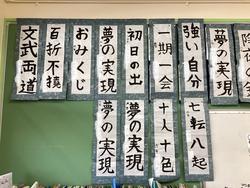 文武両道
百折不撓
おみくじ
夢の実現
初日の出
一期一会
強い自分
夢の実現
夢の実現
夢の実現
十人十色
七転八起